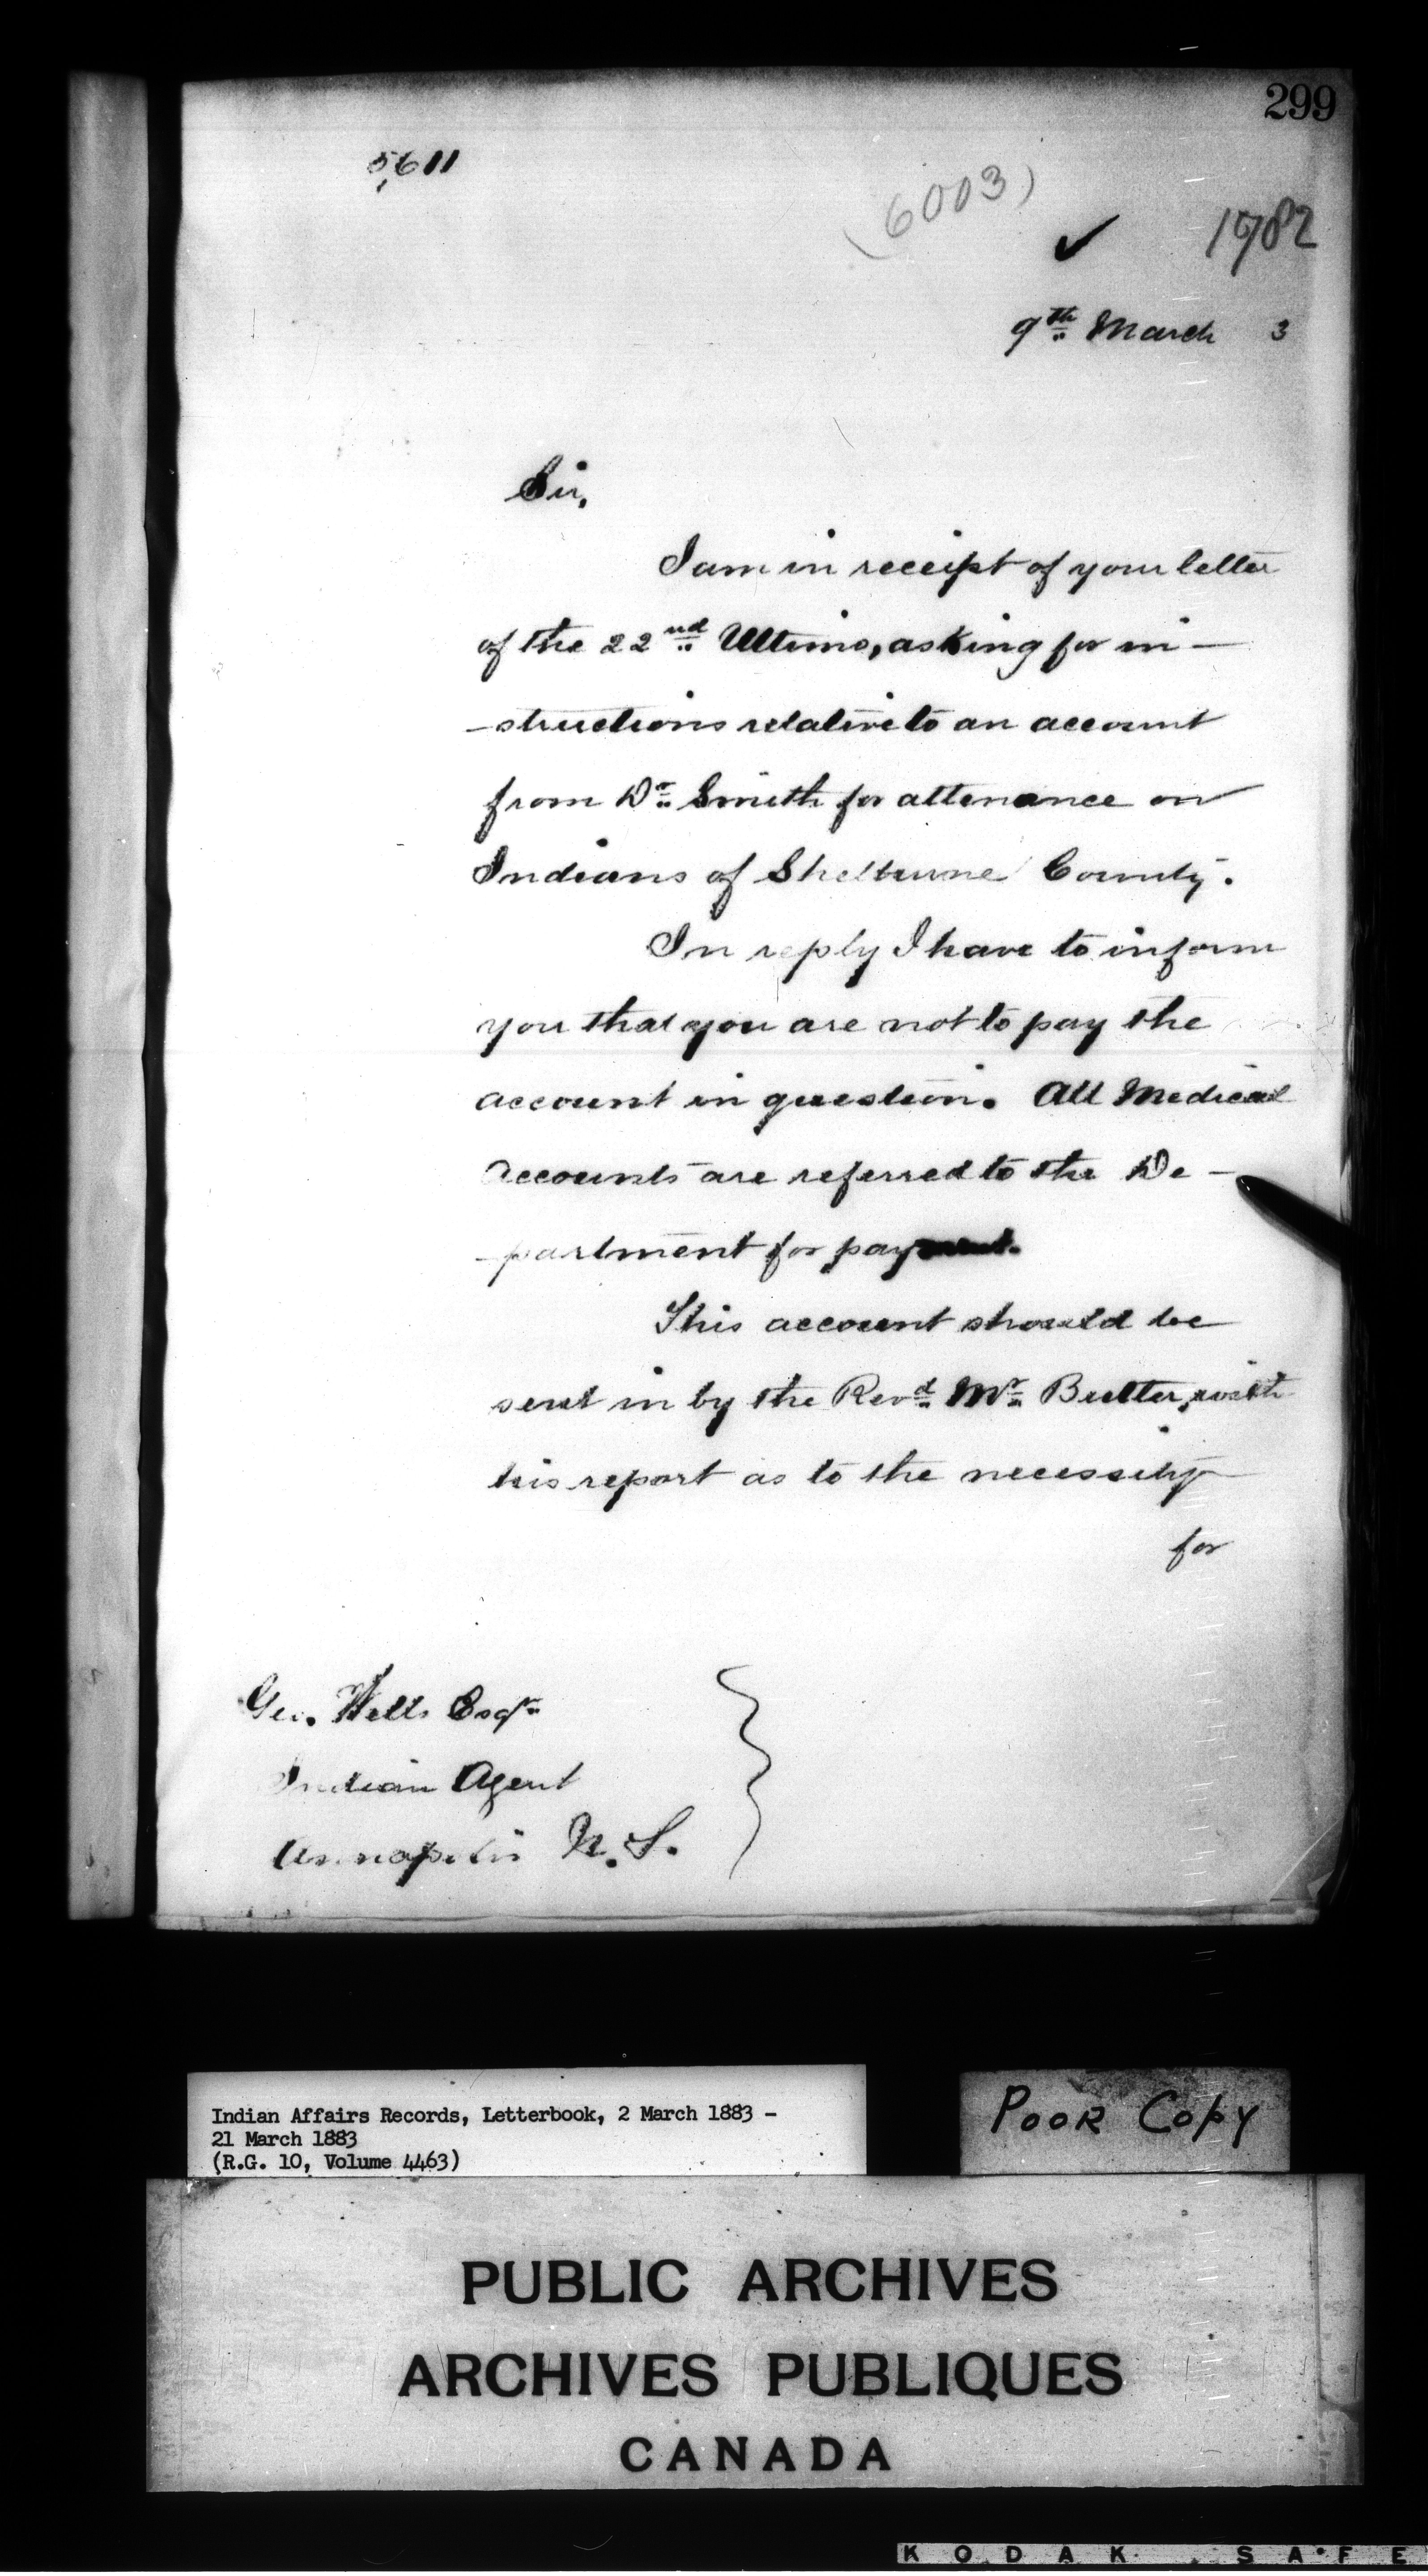 299
5,611
(6003)
✓ 1982
9th March 3
Sir,
I am in receipt of your letter
of the 22nd Ultimo, asking for in-
-structions relative to an account
from Dr. Smith for attenance on
Indians of Shelburne County.
In reply I have to inform
you that you are not to pay the
account in question. All Medical
accounts are referred to the De-
-partment for payment.
This account should be
sent in by the Revd. Mr. Butler, with
his report as to the necessity
for
Geo. Wells Esqr.
Indian Agent
Annapolis N.S.
Indian Affairs Records, Letterbook, 2 March 1883 -
21 March 1883
(R.G. 10, Volume 4463)
POOR COPY
PUBLIC ARCHIVES
ARCHIVES PUBLIQUES
CANADA
KODAK SAFE